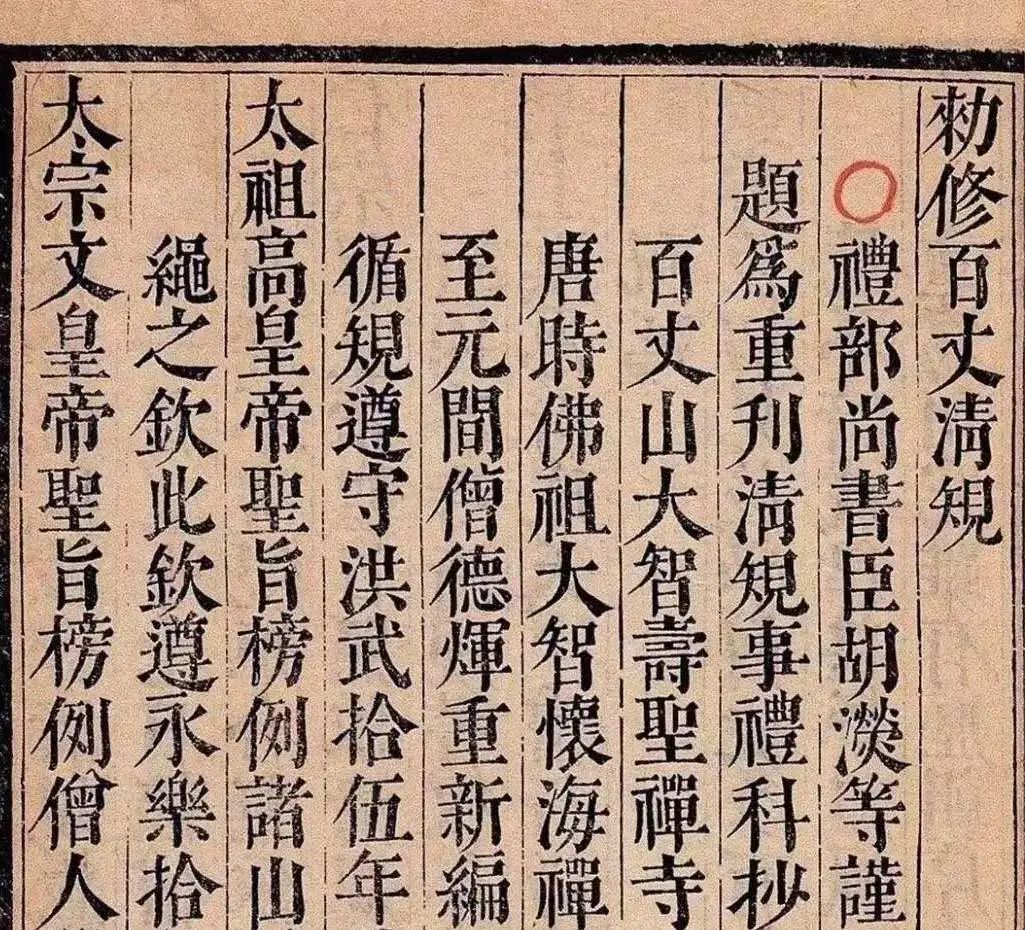 勑修百丈清規
禮部尚書臣胡濙等謹
題爲重刋清規事禮科抄
百丈山大智壽聖禪寺
唐時佛祖大智懷海禪
至元間僧德煇重新編
循規遵守洪武拾伍年
太祖高皇帝聖旨榜例諸山
繩之欽此欽遵永樂拾
太宗文皇帝聖旨榜例僧人